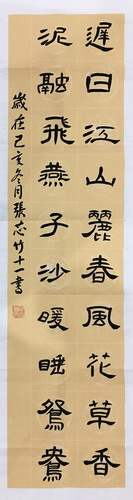 遲日江山麗春風花草香
泥融飛燕子沙暖睡鴛鴦
歲在己亥冬月張志竹十一書